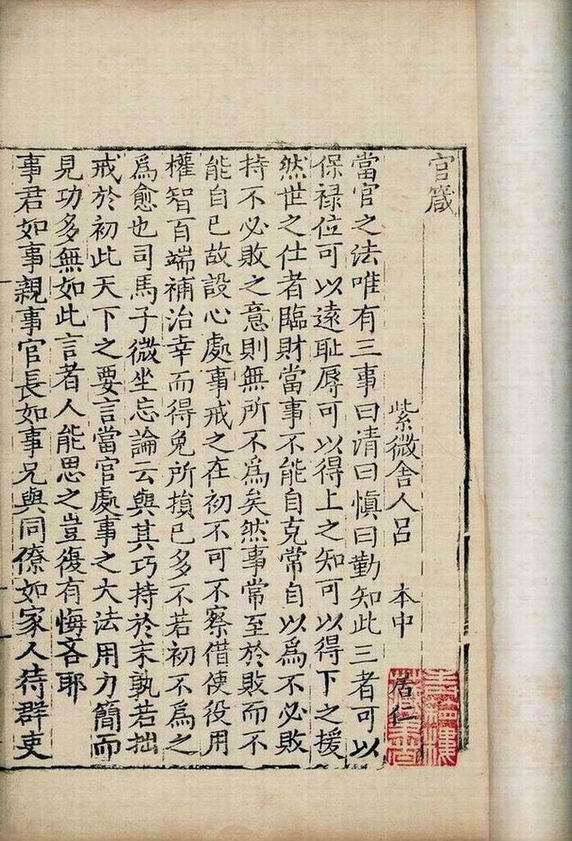 官箴
紫微舍人呂 本中 居仁
當官之法唯有三事曰清曰慎曰勤知此三者可以
保禄位可以遠恥辱可以得上之知可以得下之援
然世之仕者臨財當事不能自克常自以為不必敗
持不必敗之意則無所不為矣然事常至於敗而不
能自已故設心處事戒之在初不可不察借使役用
權智百端補治幸而得免所損已多不若初不為之
為愈也司馬子微坐忘論云與其巧持於末孰若拙
戒於初此天下之要言當官處事之大法用力簡而
見功多無如此言者人能思之豈復有悔吝耶
事君如事親事官長如事兄與同僚如家人待群吏